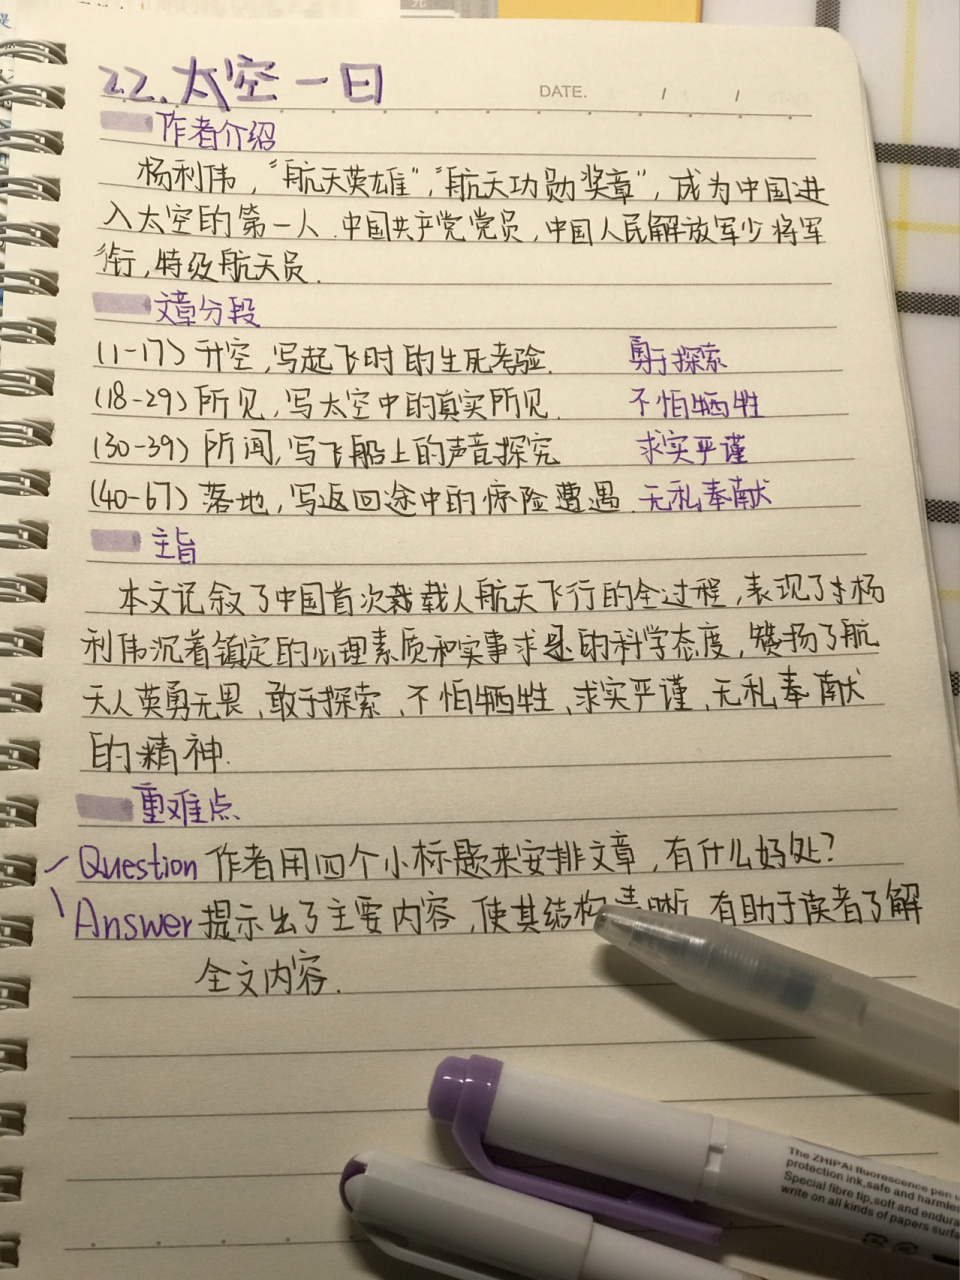 22.太空一日
DATE. / /
作者介绍
杨利伟，“航天英雄”，“航天功勋奖章”，成为中国进
入太空的第一人.中国共产党党员，中国人民解放军少将军
衔，特级航天员.
文章分段
(1-17) 升空，写起飞时的生死考验. 勇于探索
(18-29) 所见，写太空中的真实所见. 不怕牺牲
(30-39) 所闻，写飞船上的声音探究 求实严谨
(40-67) 落地，写返回途中的惊险遭遇. 无私奉献
主旨
本文记叙了中国首次载人航天飞行的全过程，表现了杨
利伟沉着镇定的心理素质和实事求是的科学态度，赞扬了航
天人英勇无畏、敢于探索、不怕牺牲、求实严谨、无私奉献
的精神.
重难点
Question 作者用四个小标题来安排文章，有什么好处？
Answer 提示出了主要内容，使其结构清晰，有助于读者了解
全文内容.
The ZHIPAI fluorescence pen
protection ink,safe and harmles
Special fibre tip,soft and endura
write on all kinds of papers surfa